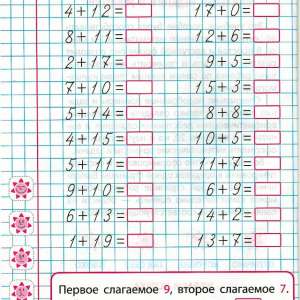 4+12= 17+0=
8+11= 12+6=
2+17= 9+5=
7+10= 15+3=
5+14= 8+8=
4+15= 10+5=
5+11= 11+7=
9+10= 6+9=
6+13= 14+2=
1+19= 13+7=
Первое слагаемое 9, второе слагаемое 7.